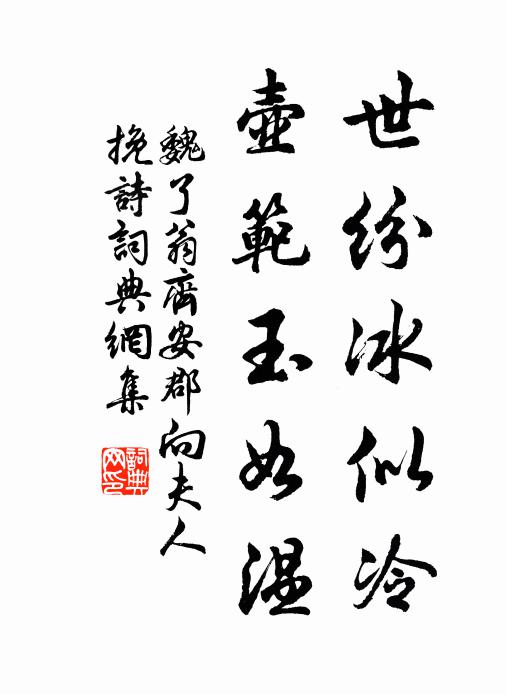 世紛冰似冷
壺範玉如温
魏了翁齊安郡向夫人
挽詩詞典網集
詞典网印